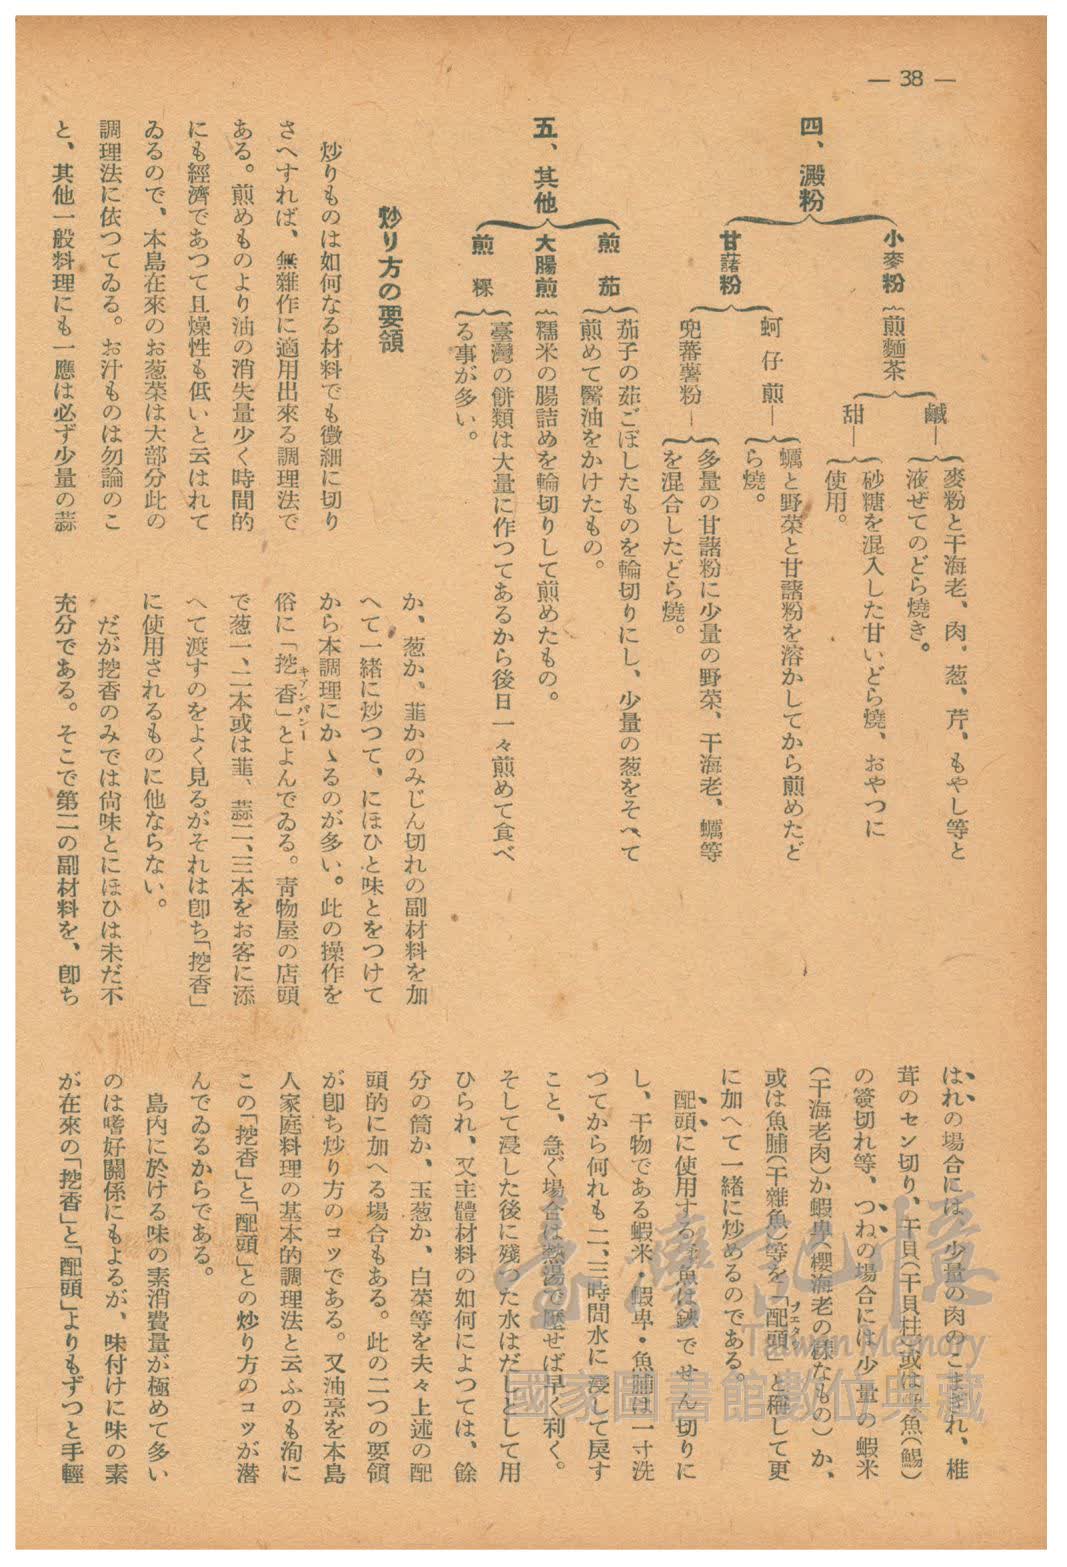 — 38 —
四、澱粉
小麥粉
煎麵茶
鹹
麥粉と干海老、肉、葱、芹、もやし等と
液ぜてのどら燒き。
甜
砂糖を混入した甘いどら燒、おやつに
使用。
甘藷粉
蚵仔煎
蠣と野菜と甘藷粉を溶かしてから煎めたど
ら燒。
兜蕃薯粉
多量の甘藷粉に少量の野菜、干海老、蠣等
を混合したどら燒。
五、其他
煎茄
茄子の茹ごぼしたものを輪切りにし、少量の葱をそへて
煎めて醬油をかけたもの。
大腸煎
糯米の腸詰めを輪切りして煎めたもの。
煎粿
臺灣の餅類は大量に作つてあるから後日一々煎めて食べ
る事が多い。
炒り方の要領
炒りものは如何なる材料でも微細に切り
さへすれば、無雜作に適用出來る調理法で
ある。煎めものより油の消失量少く時間的
にも經濟であつて且燥性も低いと云はれて
ゐるので、本島在來のお葱菜は大部分此の
調理法に依つてゐる。お汁ものは勿論のこ
と、其他一般料理にも一應は必ず少量の蒜
か、葱か、韮かのみじん切れの副材料を加
へて一緒に炒つて、にほひと味とをつけて
から本調理にかゝるのが多い。此の操作を
俗に「挖香」とよんでゐる。靑物屋の店頭
キアンパン
で葱一、二本或は韮、蒜二、三本をお客に添
へて渡すのをよく見るがそれは卽ち「挖香」
に使用されるものに他ならない。
だが挖香のみでは尙味とにほひは未だ不
充分である。そこで第二の副材料を、卽ち
はれの場合には、少量の肉のこまぎれ、椎
茸のセン切り、干貝(干貝柱)或は魚(鯣)
の簑切れ等、つねの場合には少量の蝦米
(干海老肉)か蝦卑(櫻海老の樣なもの)か、
或は魚脯(干雜魚)等を「配頭」と稱して更
に加へて一緒に炒めるのである。
配頭に使用する魚は鋏でせん切りに
し、干物である蝦米・蝦卑・魚脯は一寸洗
つてから何れも二、三時間水に浸して戻す
こと、急ぐ場合は熱湯で歷せば早く利く。
そして浸した後に殘つた水はだしとして用
ひられ、又主體材料の如何によつては、餘
分の筒か、玉葱か、白菜等を夫々上述の配
頭的に加へる場合もある。此の二つの要領
が卽ち炒り方のコツである。又油烹を本島
人家庭料理の基本的調理法と云ふのも洵に
この「挖香」と「配頭」との炒り方のコツが潜
んでゐるからである。
島內に於ける味の素消費量が極めて多い
のは嗜好關係にもよるが、味付けに味の素
が在來の「挖香」と「配頭」よりもずつと手輕
臺灣記憶
Taiwan Memory
國家圖書館數位典藏